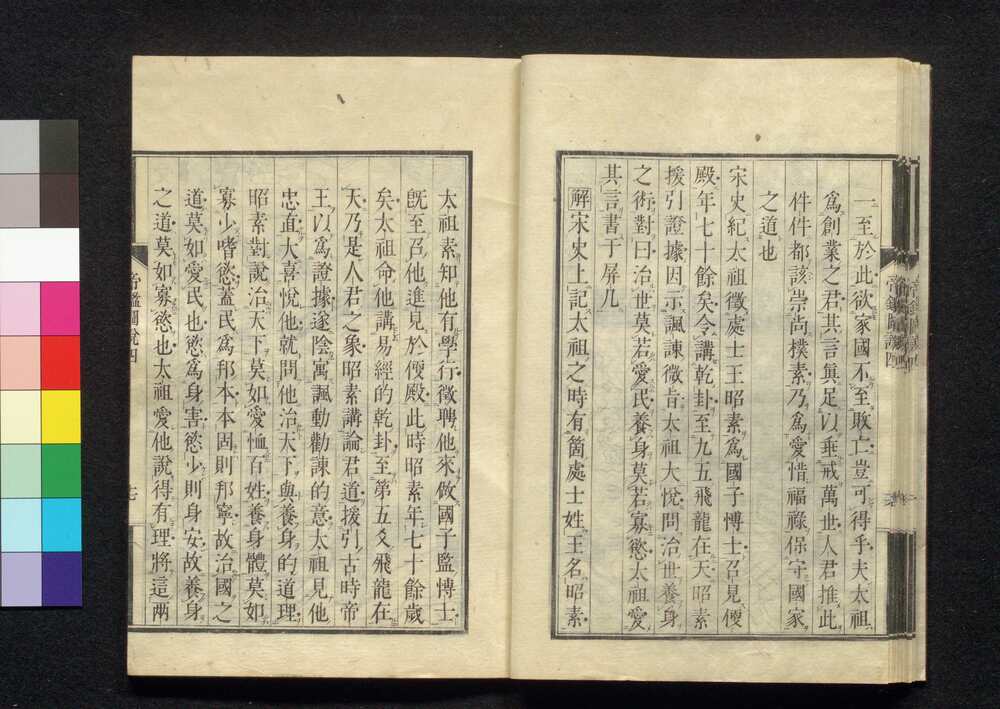 一至於此欲家國不至敗亡豈可得乎夫太祖
爲創業之君其言眞足以垂戒萬世人君推此
件件都該崇尚樸素乃爲愛惜福祿保守國家
之道也
宋史紀太祖徵處士王昭素爲國子博士召見便
殿年七十餘矣令講乾卦至九五飛龍在天昭素
援引證據因示諷諫微旨太祖大悅問治世養身
之術對曰治世莫若愛民養身莫若寡慾太祖愛
其言書于屏几
解宋史上記太祖之時有箇處士姓王名昭素
太祖素知他有學行徵聘他來做國子監博士
旣至召他進見於便殿此時昭素年七十餘歲
矣太祖命他講易經的乾卦至第五爻飛龍在
天乃是人君之象昭素講論君道援引古時帝
王以爲證據遂陰寓諷動勸諫的意太祖見他
忠直大喜悅他就問他治天下與養身的道理
昭素對說治天下莫如愛恤百姓養身體莫如
寡少嗜慾蓋民爲邦本本固則邦寧故治國之
道莫如愛民也慾爲身害慾少則身安故養身
之道莫如寡慾也太祖愛他說得有理將這兩
帝鑑圖說四